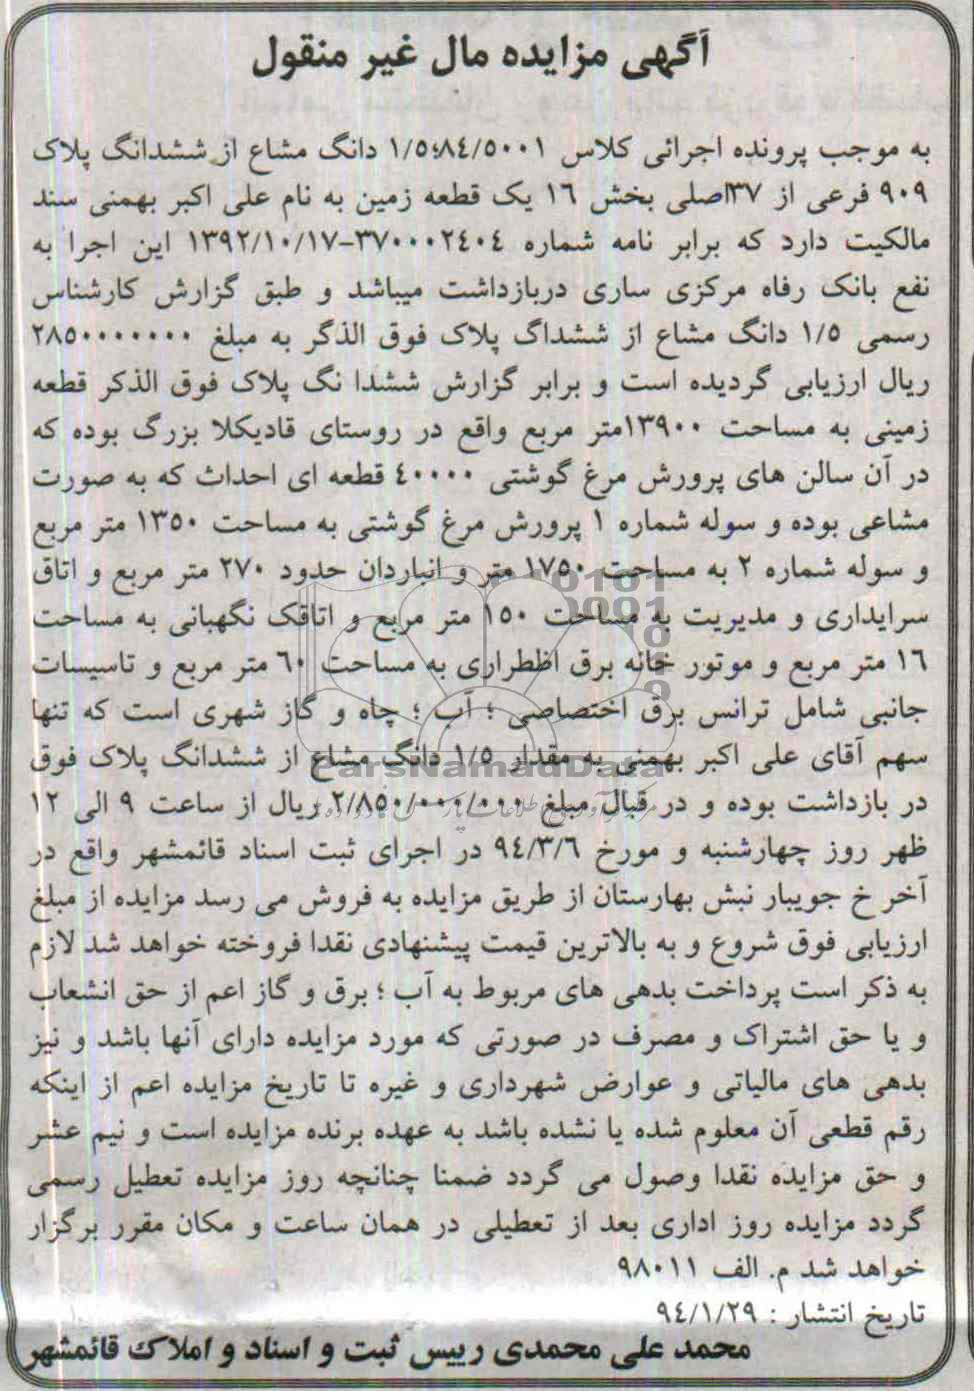 آگهی مزایده مال غیر منقول
به موجب پرونده اجرائی کلاس ۸٤/٥۰۰۱؛۱/٥ دانگ مشاع از ششدانگ پلاک
۹۰۹ فرعی از ۳۷اصلی بخش ۱٦ یک قطعه زمین به نام علی اکبر بهمنی سند
مالکیت دارد که برابر نامه شماره ۳۷۰۰۰۲٤۰٤-۱۳۹۲/۱۰/۱۷ این اجرا به
نفع بانک رفاه مرکزی ساری دربازداشت میباشد و طبق گزارش کارشناس
رسمی ۱/٥ دانگ مشاع از ششداگ پلاک فوق الذگر به مبلغ ۲۸٥۰۰۰۰۰۰۰
ریال ارزیابی گردیده است و برابر گزارش ششدا نگ پلاک فوق الذکر قطعه
زمینی به مساحت ۱۳۹۰۰متر مربع واقع در روستای قادیکلا بزرگ بوده که
در آن سالن های پرورش مرغ گوشتی ٤۰۰۰۰ قطعه ای احداث که به صورت
مشاعی بوده و سوله شماره ۱ پرورش مرغ گوشتی به مساحت ۱۳٥۰ متر مربع
و سوله شماره ۲ به مساحت ۱۷٥۰ متر و انباردان حدود ۲۷۰ متر مربع و اتاق
سرایداری و مدیریت به مساحت ۱٥۰ متر مربع و اتاقک نگهبانی به مساحت
۱٦ متر مربع و موتور خانه برق اظطراری به مساحت ٦۰ متر مربع و تاسیسات
جانبی شامل ترانس برق اختصاصی ؛ آب ؛ چاه و گاز شهری است که تنها
سهم آقای علی اکبر بهمنی به مقدار ۱/٥ دانگ مشاع از ششدانگ پلاک فوق
ParsNamadData
در بازداشت بوده و در قبال مبلغ ۲/۸٥۰/۰۰۰/۰۰۰ ریال از ساعت ۹ الی ۱۲
ظهر روز چهارشنبه و مورخ ۹٤/۳/٦ در اجرای ثبت اسناد قائمشهر واقع در
آخر خ جویبار نبش بهارستان از طریق مزایده به فروش می رسد مزایده از مبلغ
ارزیابی فوق شروع و به بالاترین قیمت پیشنهادی نقدا فروخته خواهد شد لازم
به ذکر است پرداخت بدهی های مربوط به آب ؛ برق و گاز اعم از حق انشعاب
و یا حق اشتراک و مصرف در صورتی که مورد مزایده دارای آنها باشد و نیز
بدهی های مالیاتی و عوارض شهرداری و غیره تا تاریخ مزایده اعم از اینکه
رقم قطعی آن معلوم شده یا نشده باشد به عهده برنده مزایده است و نیم عشر
و حق مزایده نقدا وصول می گردد ضمنا چنانچه روز مزایده تعطیل رسمی
گردد مزایده روز اداری بعد از تعطیلی در همان ساعت و مکان مقرر برگزار
خواهد شد م. الف ۹۸۰۱۱
تاریخ انتشار : ۹٤/۱/۲۹
محمد علی محمدی رییس ثبت و اسناد و املاک قائمشهر